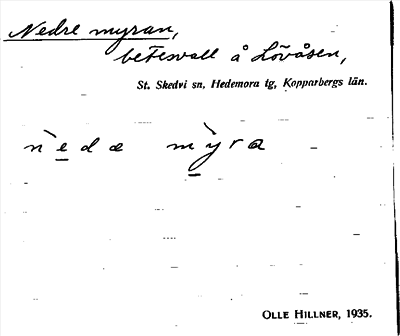 Nedre myran,
betesvall å Lövåsen,
St. Skedvi sn, Hedemora tg, Kopparbergs län.
ǹedæ m̀yra
OLLE HILLNER, 1935.